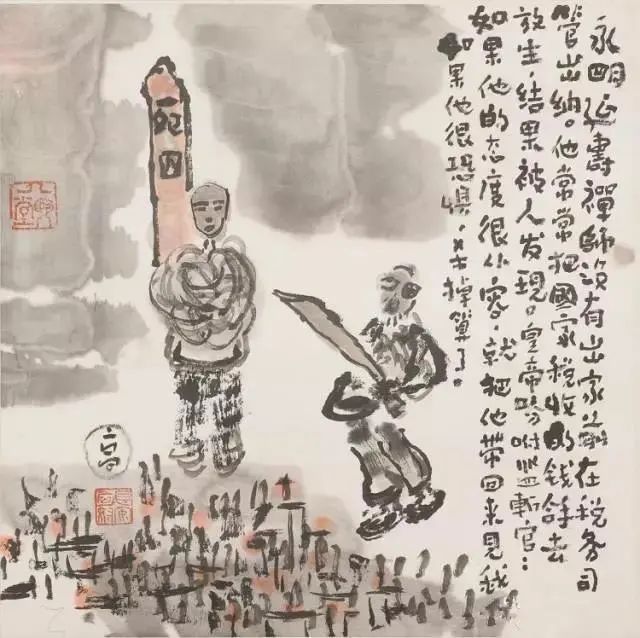 永明延壽禪師沒有出家前在税务司
管出纳。他常常把國家税收的钱拿去
放生,结果被人发現。皇帝吩咐监斬官:
如果他的态度很从容,就把他带回来见我
如果他很恐惧,杀掉算了。
死囚